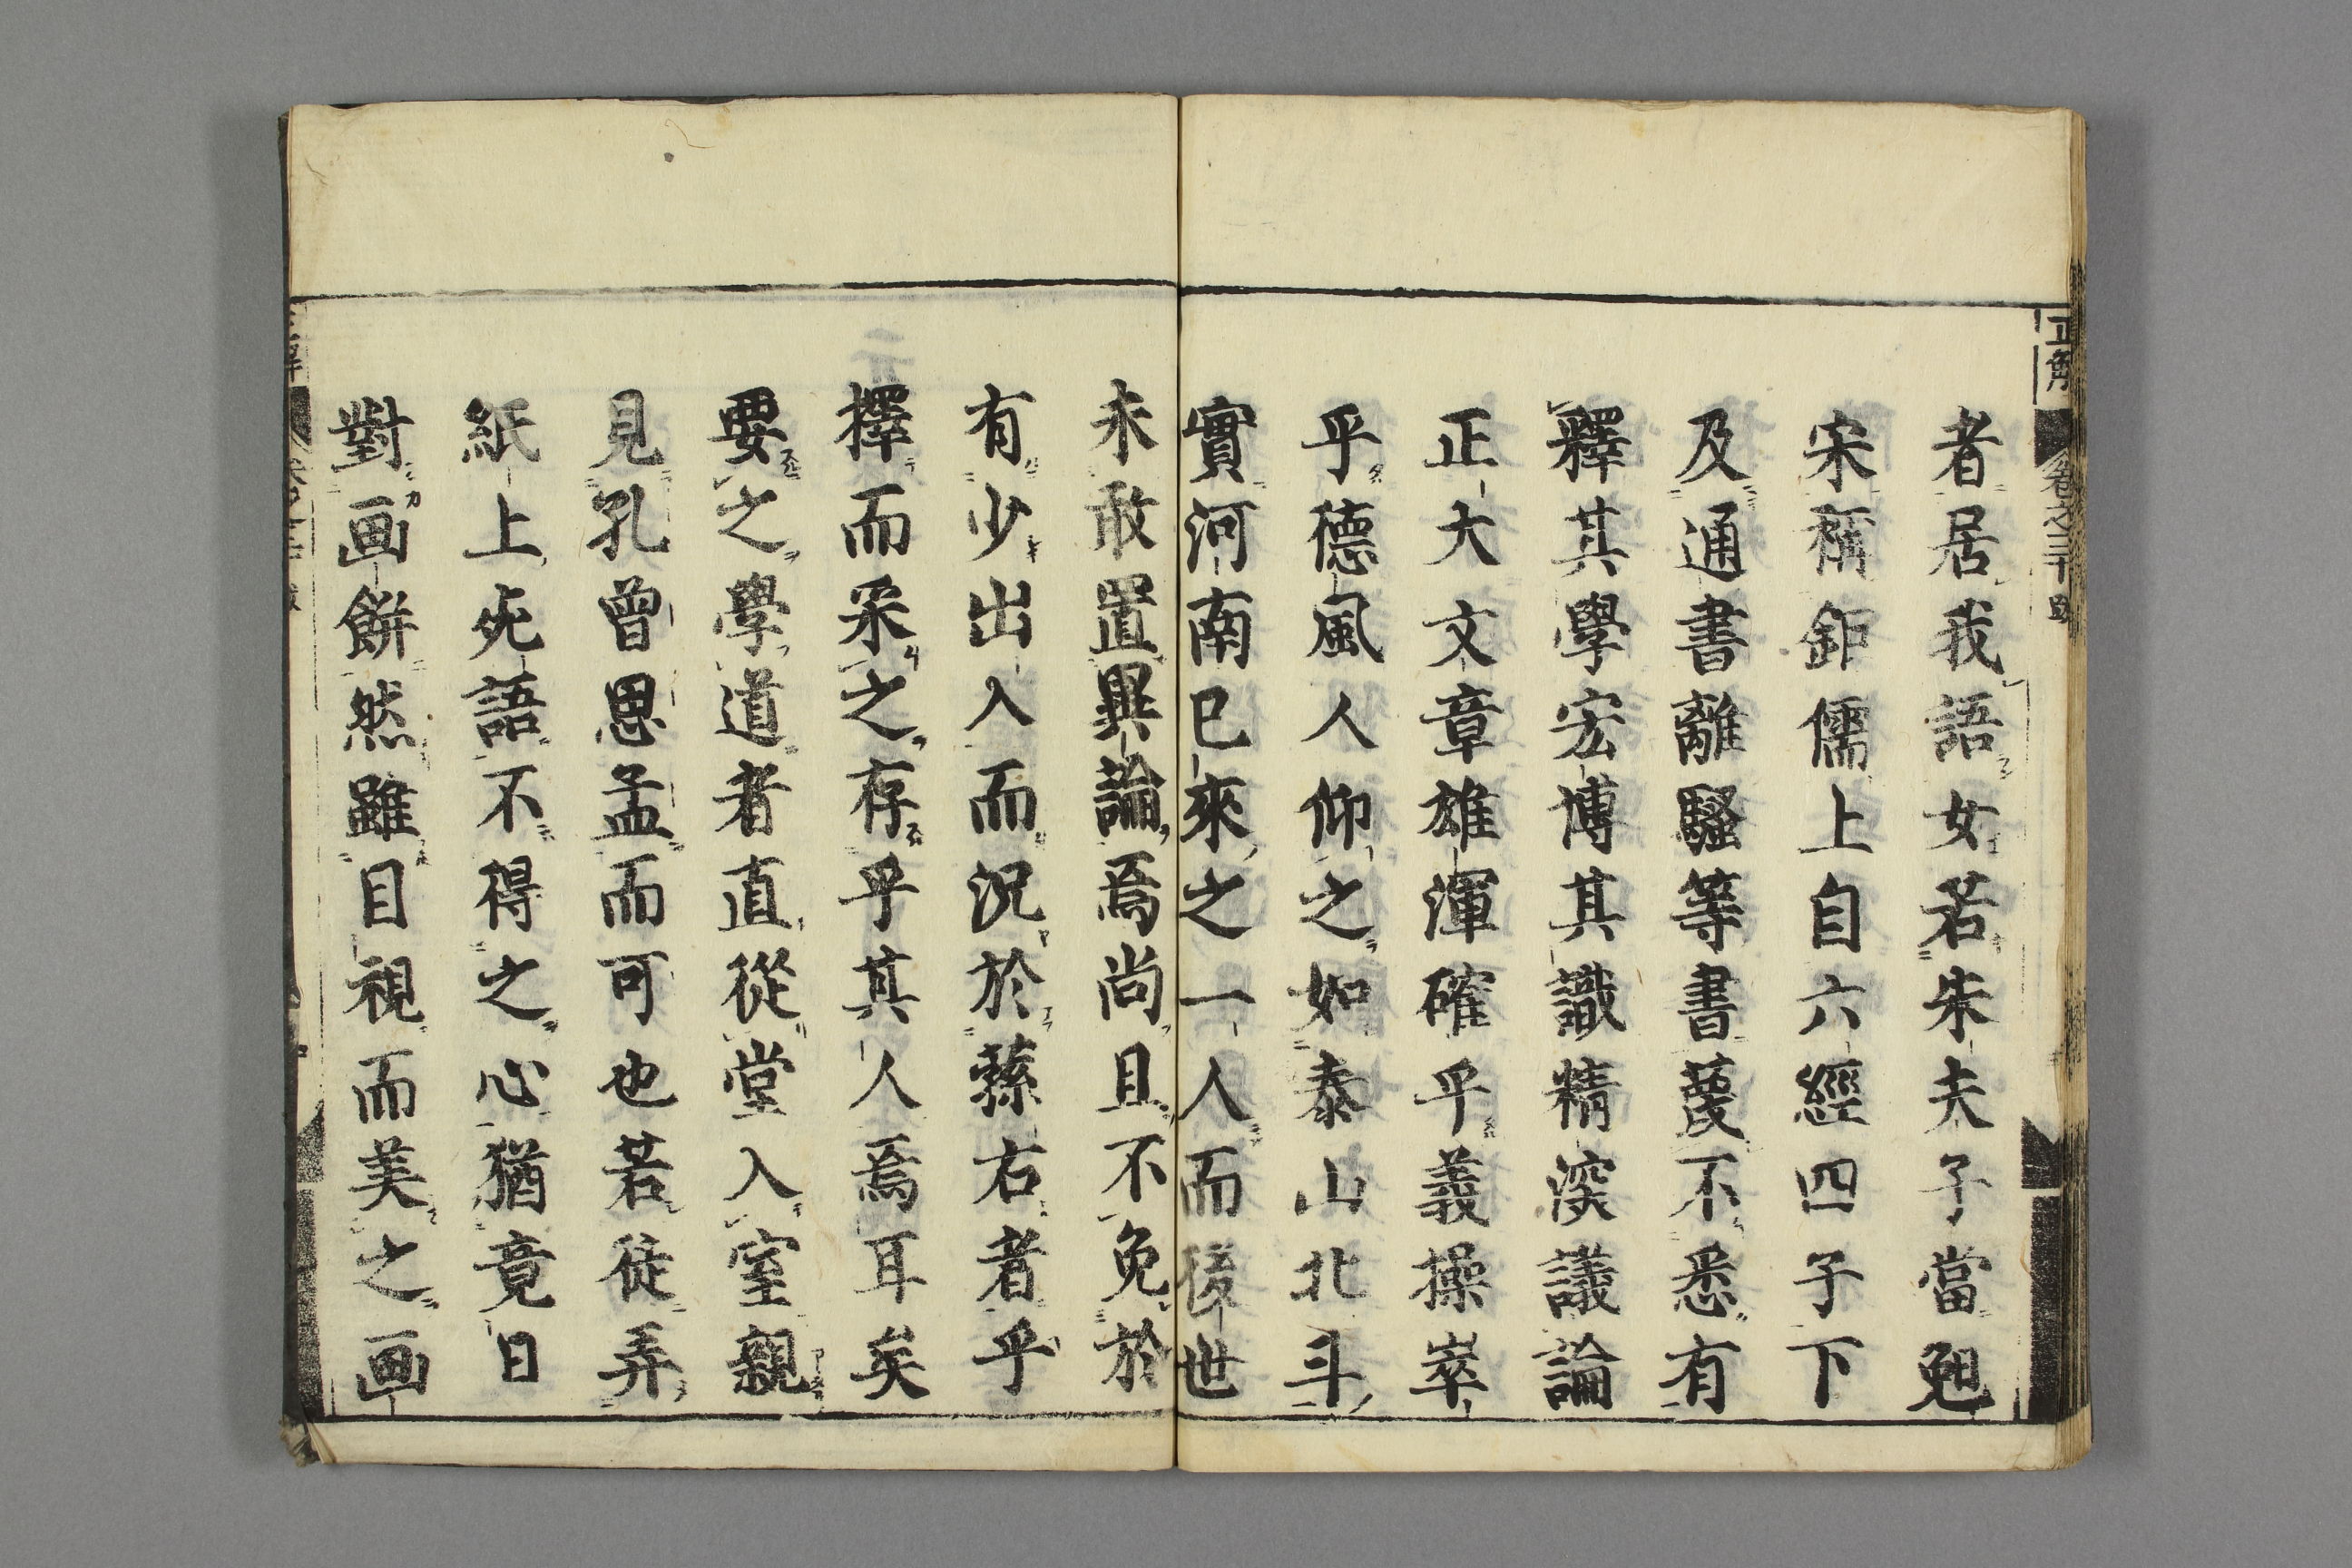 者居我語女若朱夫子當勉
宋稱鉅儒上自六經四子下
及通書離騷等書蔑不悉有
釋其學宏博其識精深議論
正大文章雄渾確乎義操崒
乎德風人仰之如泰山北斗
實河南已來之一人而後世
未敢置異論焉尚且不免於
有少出入而況於蘓右者乎
擇而采之存乎其人焉耳矣
要之學道者直從堂入室親
見孔曾思孟而可也若徒弄
紙上死語不得之心猶竟日
對画餅然雖目視而美之画